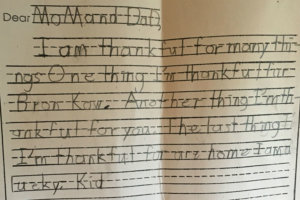 Dear Mo Mand Dad,
I am thankful for many thi
ngs One thing I'm thankful for
Bron Kow. Another thing I'mth
ankful for you. The last thing I
I'm thankful for are home I am a
Lucky. Kid